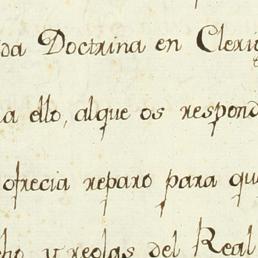 da Doctrina en Cleri
a ello, alque os respond
ofrecia reparo para qu
cho, y reglas del Real